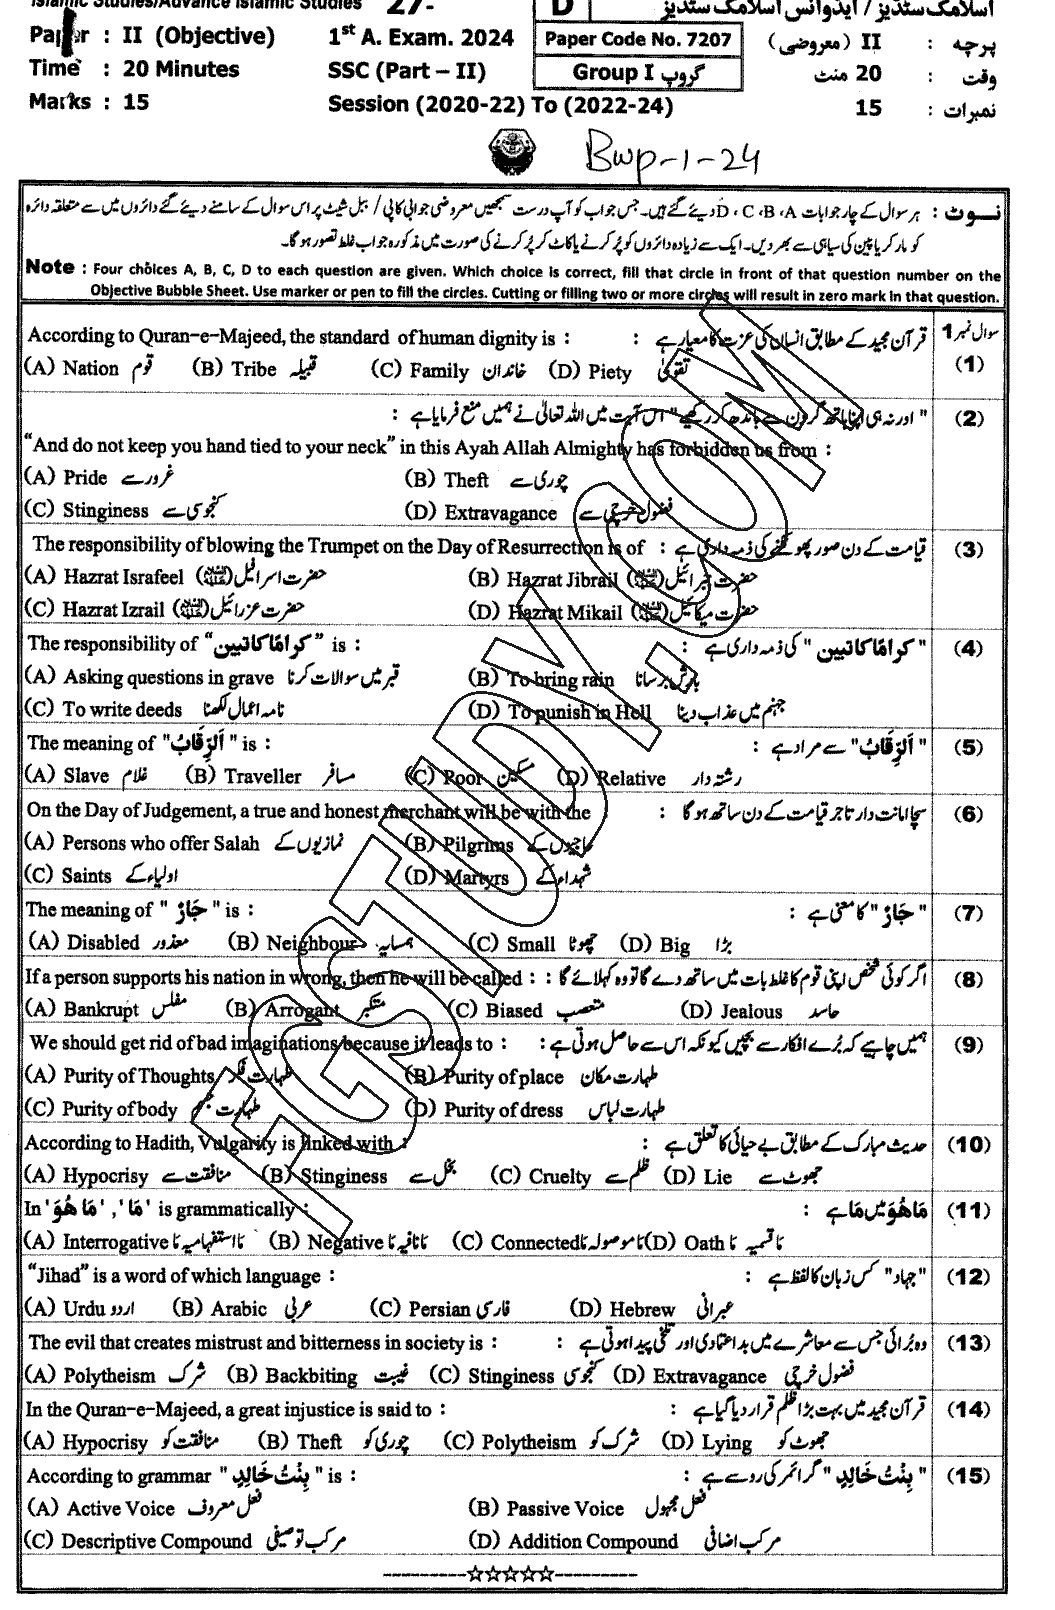 Islamic Studies/Advance Islamic Studies 27- D اسلامک سٹڈیز / ایڈوانس اسلامک سٹڈیز
Paper : II (Objective) 1st A. Exam. 2024 Paper Code No. 7207 پرچہ : II (معروضی)
Time : 20 Minutes SSC (Part – II) Group I گروپ وقت : 20 منٹ
Marks : 15 Session (2020-22) To (2022-24) نمبرات : 15
Bwp-1-24
نوٹ : ہر سوال کے چار جوابات A، B، C، D دیئے گئے ہیں۔ جس جواب کو آپ درست سمجھیں معروضی جوابی کاپی / ببل شیٹ پر اس سوال کے سامنے دیئے گئے دائروں میں سے متعلقہ دائرہ
کو مارکر یا پین کی سیاہی سے بھر دیں۔ ایک سے زیادہ دائروں کو پُر کرنے یا کاٹ کر پُر کرنے کی صورت میں مذکورہ جواب غلط تصور ہو گا۔
Note : Four choices A, B, C, D to each question are given. Which choice is correct, fill that circle in front of that question number on the
Objective Bubble Sheet. Use marker or pen to fill the circles. Cutting or filling two or more circles will result in zero mark in that question.
سوال نمبر 1
According to Quran-e-Majeed, the standard of human dignity is : قرآن مجید کے مطابق انسان کی عزت کا معیار ہے : (1)
(A) Nation قوم (B) Tribe قبیلہ (C) Family خاندان (D) Piety تقویٰ
" اور نہ ہی اپنا ہاتھ گردن سے باندھ کر رکھیے " اس آیت میں اللہ تعالیٰ نے ہمیں منع فرمایا ہے : (2)
“And do not keep you hand tied to your neck” in this Ayah Allah Almighty has forbidden us from :
(A) Pride غرور سے (B) Theft چوری سے
(C) Stinginess کنجوسی سے (D) Extravagance فضول خرچی سے
The responsibility of blowing the Trumpet on the Day of Resurrection is of : قیامت کے دن صور پھونکنے کی ذمہ داری ہے : (3)
(A) Hazrat Israfeel حضرت اسرافیل (B) Hazrat Jibrail حضرت جبرائیل
(C) Hazrat Izrail حضرت عزرائیل (D) Hazrat Mikail حضرت میکائیل
The responsibility of “کراماً کاتبین” is : " کراماً کاتبین " کی ذمہ داری ہے : (4)
(A) Asking questions in grave قبر میں سوالات کرنا (B) To bring rain بارش برسانا
(C) To write deeds نامہ اعمال لکھنا (D) To punish in Hell جہنم میں عذاب دینا
The meaning of "اَلرِّقَابُ" is : "اَلرِّقَابُ" سے مراد ہے : (5)
(A) Slave غلام (B) Traveller مسافر (C) Poor مسکین (D) Relative رشتہ دار
On the Day of Judgement, a true and honest merchant will be with the سچا امانت دار تاجر قیامت کے دن ساتھ ہو گا : (6)
(A) Persons who offer Salah نمازیوں کے (B) Pilgrims حاجیوں کے
(C) Saints اولیاء کے (D) Martyrs شہداء کے
The meaning of " جَارٌ " is : " جَارٌ " کا معنی ہے : (7)
(A) Disabled معذور (B) Neighbour ہمسایہ (C) Small چھوٹا (D) Big بڑا
If a person supports his nation in wrong, then he will be called : اگر کوئی شخص اپنی قوم کا غلط بات میں ساتھ دے گا تو وہ کہلائے گا : (8)
(A) Bankrupt مفلس (B) Arrogant متکبر (C) Biased متعصب (D) Jealous حاسد
We should get rid of bad imaginations because it leads to : ہمیں چاہیے کہ بُرے افکار سے بچیں کیونکہ اس سے حاصل ہوتی ہے : (9)
(A) Purity of Thoughts طہارت فکر (B) Purity of place طہارت مکان
(C) Purity of body طہارت جسم (D) Purity of dress طہارت لباس
According to Hadith, Vulgarity is linked with : حدیث مبارک کے مطابق بے حیائی کا تعلق ہے : (10)
(A) Hypocrisy منافقت سے (B) Stinginess بخل سے (C) Cruelty ظلم سے (D) Lie جھوٹ سے
In 'مَا هُوَ', 'مَا' is grammatically : مَا هُوَ میں مَا ہے : (11)
(A) Interrogative ما استفہامیہ (B) Negative ما نافیہ (C) Connected ما موصولہ (D) Oath ما قسمیہ
“Jihad” is a word of which language : "جہاد" کس زبان کا لفظ ہے : (12)
(A) Urdu اردو (B) Arabic عربی (C) Persian فارسی (D) Hebrew عبرانی
The evil that creates mistrust and bitterness in society is : وہ بُرائی جس سے معاشرے میں بد اعتمادی اور تلخی پیدا ہوتی ہے : (13)
(A) Polytheism شرک (B) Backbiting غیبت (C) Stinginess کنجوسی (D) Extravagance فضول خرچی
In the Quran-e-Majeed, a great injustice is said to : قرآن مجید میں بہت بڑا ظلم قرار دیا گیا ہے : (14)
(A) Hypocrisy منافقت کو (B) Theft چوری کو (C) Polytheism شرک کو (D) Lying جھوٹ کو
According to grammar " بِنْتُ خَالِدٍ " is : " بِنْتُ خَالِدٍ " گرائمر کی رو سے ہے : (15)
(A) Active Voice فعل معروف (B) Passive Voice فعل مجہول
(C) Descriptive Compound مرکب توصیفی (D) Addition Compound مرکب اضافی
----------☆☆☆☆☆----------
FGSTUDY.COM